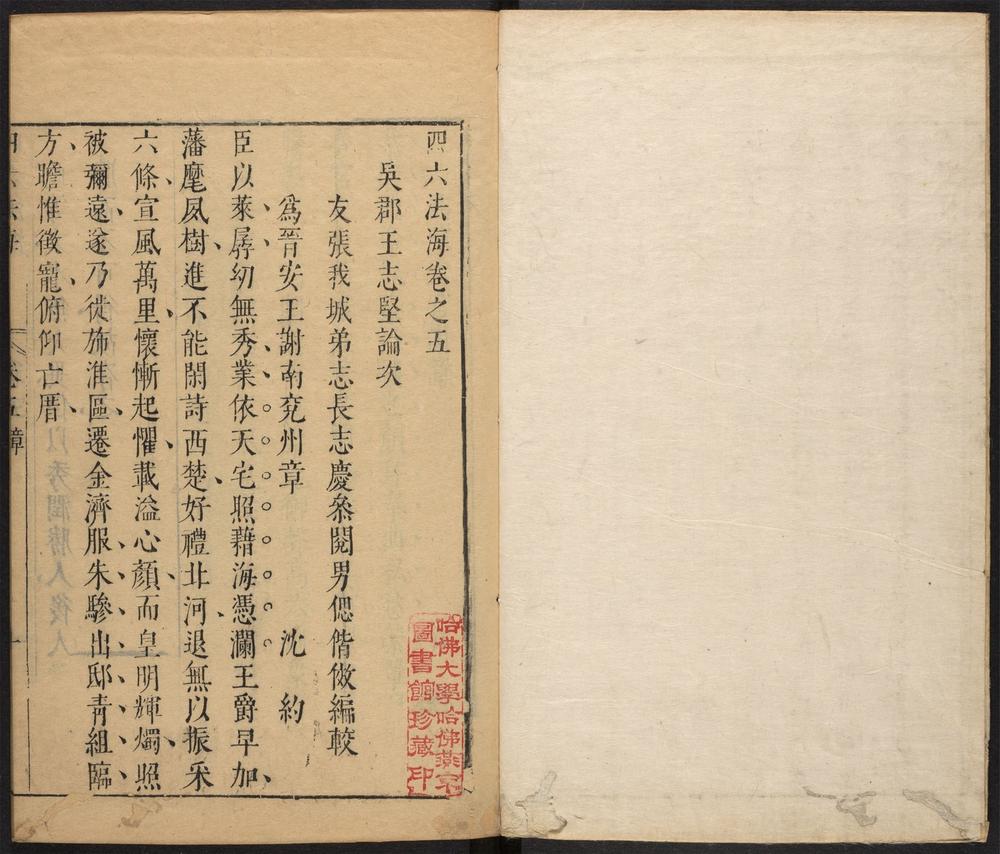 四六法海卷之五
吳郡王志堅論次
友張我城弟志長志慶叅閱男偲偕儆編較
爲晉安王謝南兗州章 沈約
臣以萊孱幼無秀業依天宅照藉海憑瀾王爵早加
藩麾夙樹進不能閑詩西楚好禮北河退無以振釆
六條宣風萬里懷慚起懼載溢心顏而皇明輝燭照
被彌遠遂乃徙斾淮區遷金濟服朱驂出邸青組臨
方瞻惟徵寵俯仰亡厝
四六法海 卷五章 一
哈佛大學哈佛燕京
圖書館珍藏印